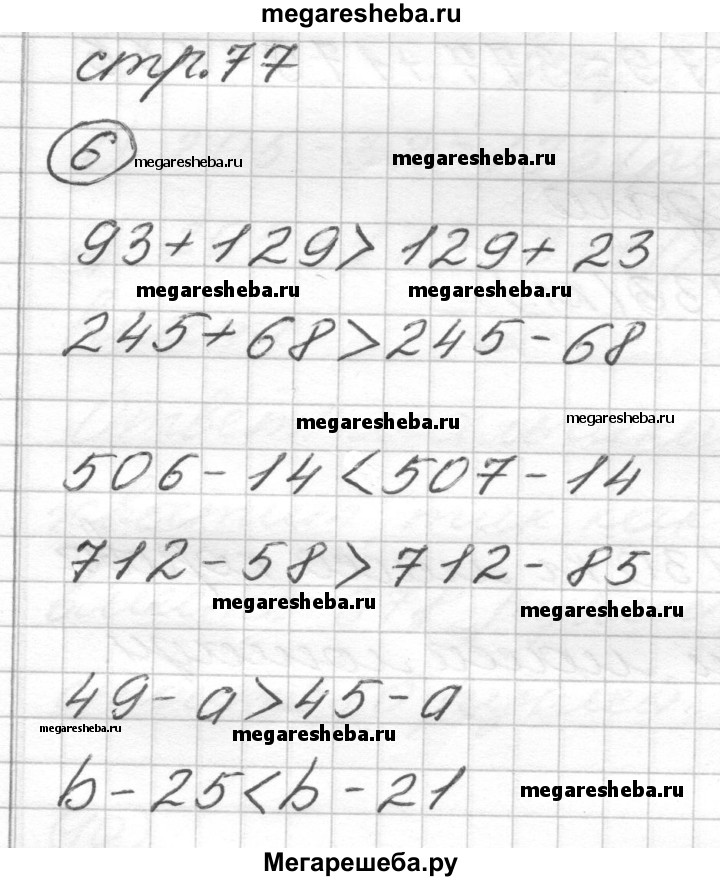 megaresheba.ru
стр. 77
6 megaresheba.ru megaresheba.ru
93 + 129 > 129 + 23
megaresheba.ru megaresheba.ru
245 + 68 > 245 - 68
megaresheba.ru megaresheba.ru
506 - 14 < 507 - 14
712 - 58 > 712 - 85
megaresheba.ru megaresheba.ru
49 - a > 45 - a
megaresheba.ru megaresheba.ru
b - 25 < b - 21
megaresheba.ru
Мегарешеба.ру